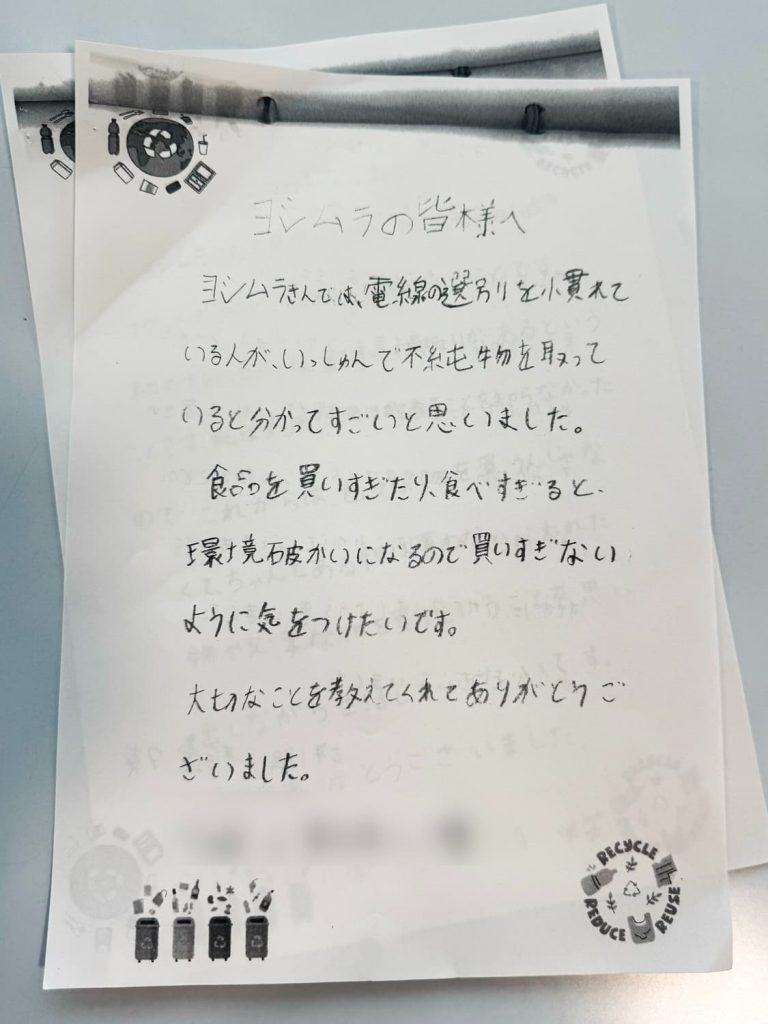 ヨシムラの皆様へ
ヨシムラさんでは、電線の選別りを小貫れて
いる人が、いっしゅんで不純物を取って
いると分かってすごいと思いました。
食品を買いすぎたり、食べすぎると、
環境破かいになるので買いすぎない
ように気をつけたいです。
大切なことを教えてくれてありがとうご
ざいました。
RECYCLE
REDUCE
REUSE